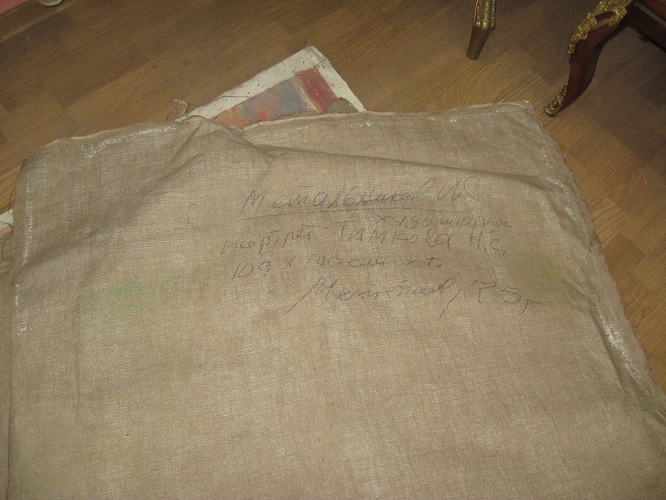 Метальников И С
художника
портрет Тимкова Н.Е.
100 см х.т.
73 г